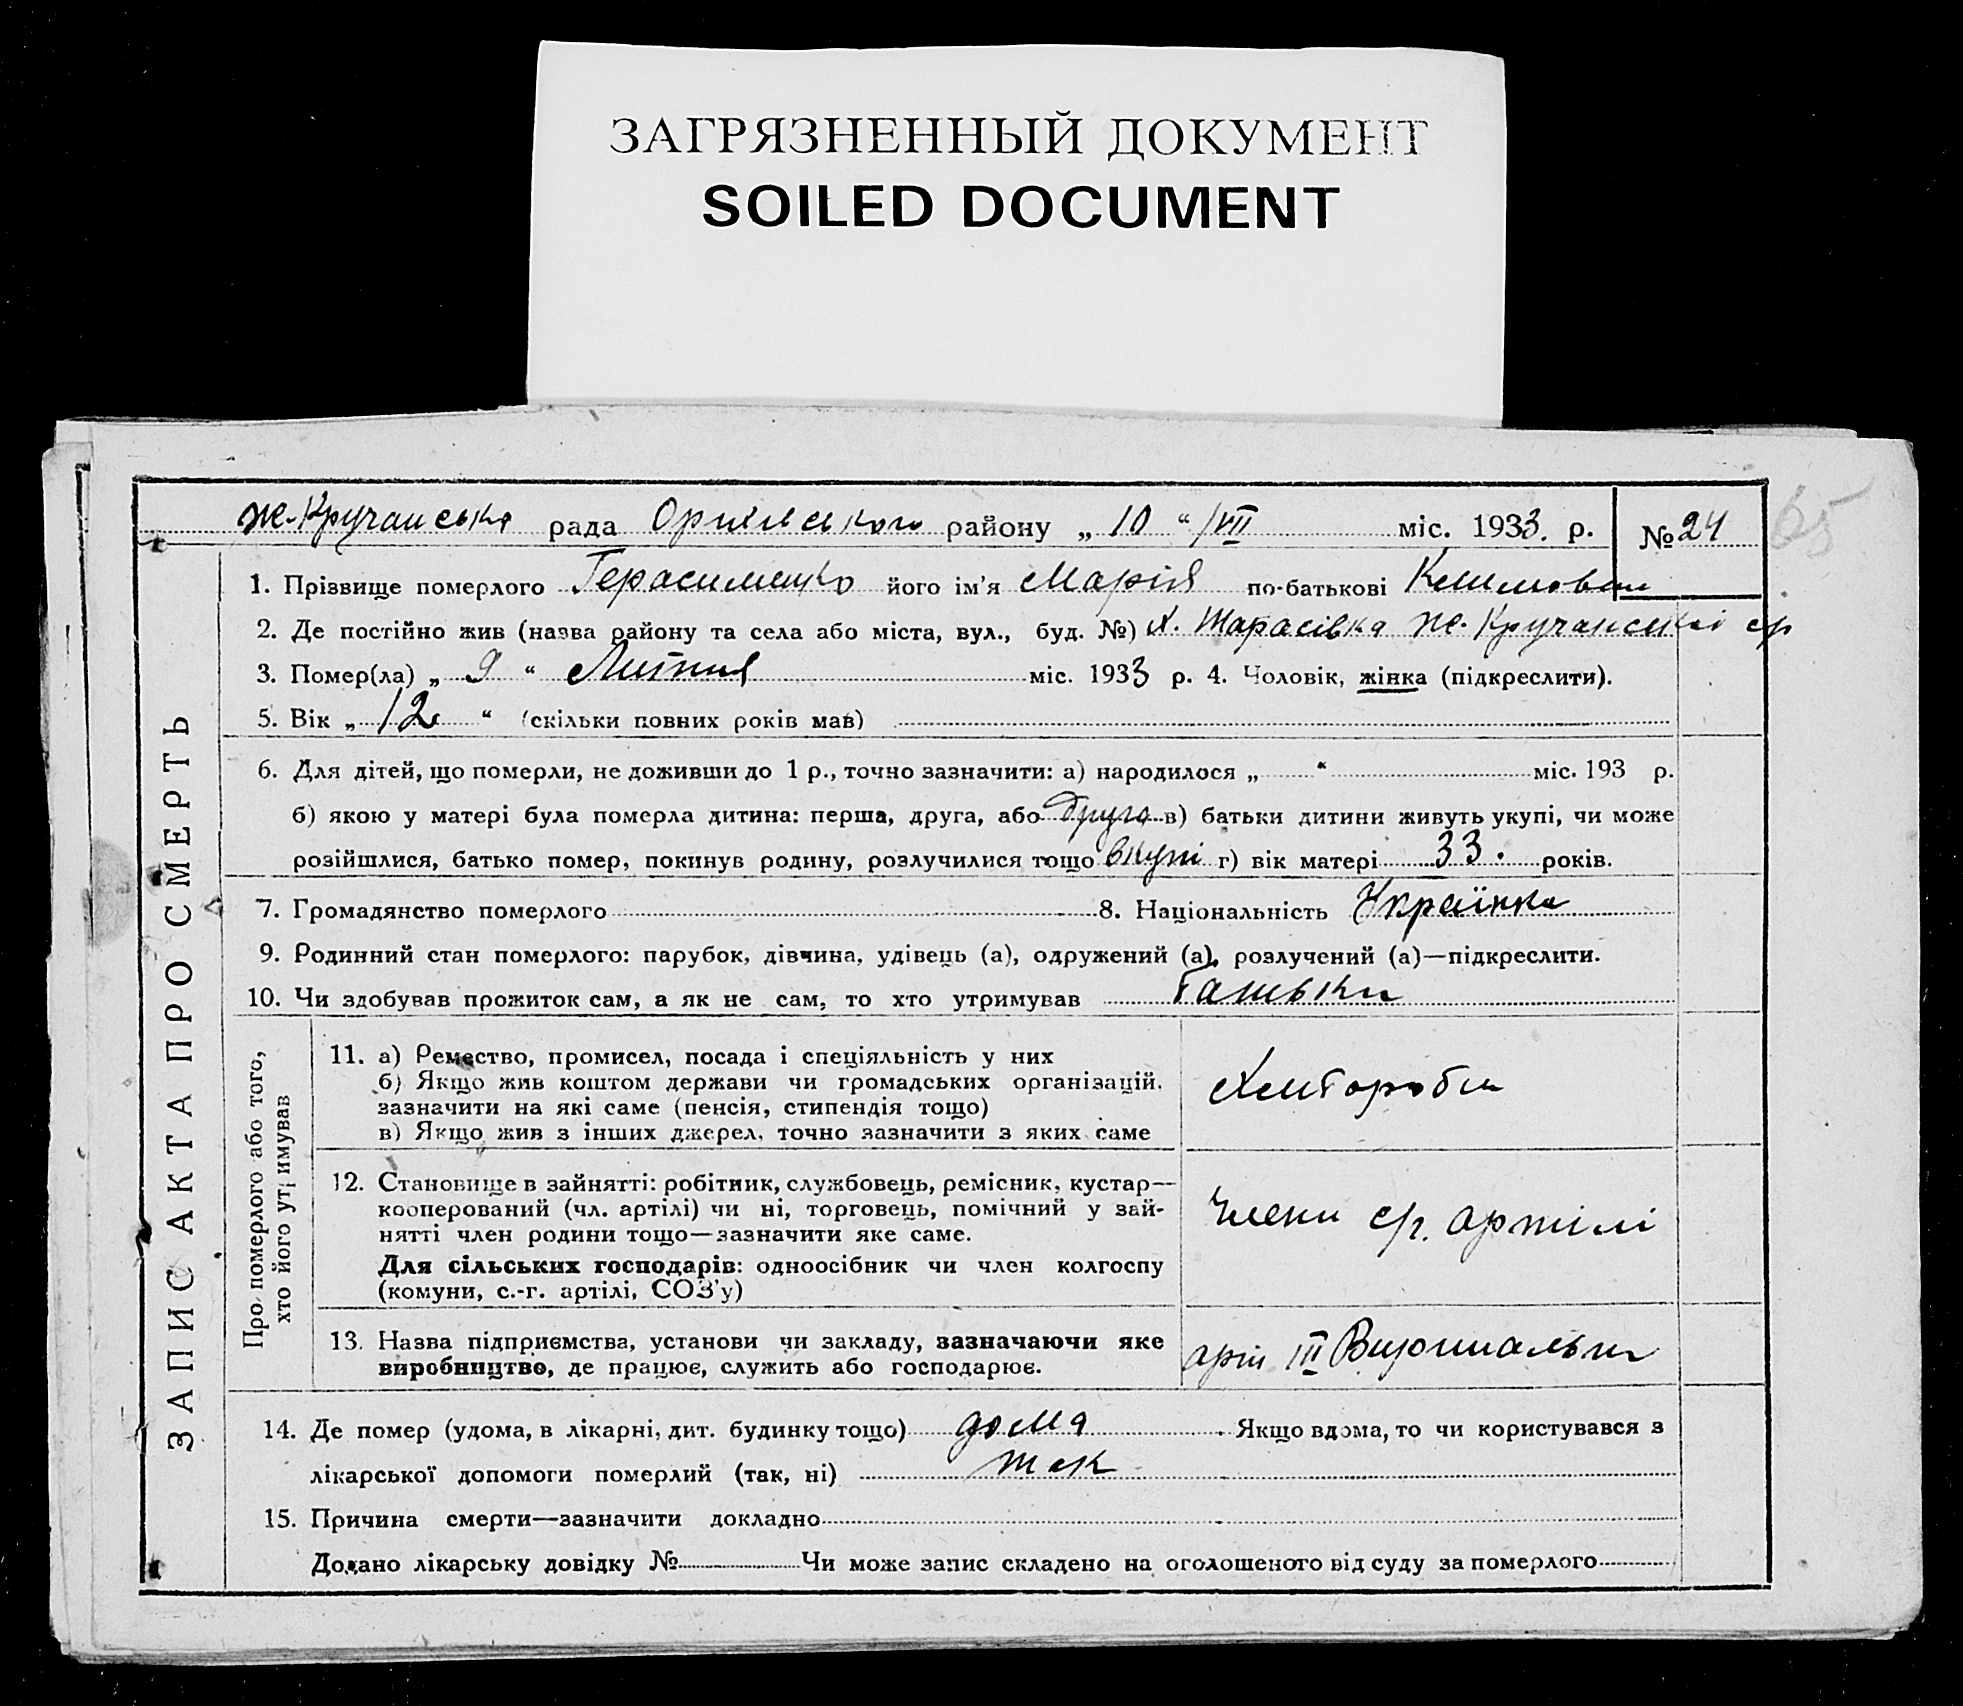 ЗАГРЯЗНЕННЫЙ ДОКУМЕНТ
SOILED DOCUMENT
65
Ж-Кручанська рада Оріхівського району „ 10 “ /VII міс. 1933. р. № 24
ЗАПИС АКТА ПРО СМЕРТЬ
1. Прізвище померлого Герасименко його ім'я Марія по-батькові Климовна
2. Де постійно жив (назва району та села або міста, вул., буд. №) х. Тарасівка Ж-Кручанської с/р
3. Помер(ла) „ 9 “ Липня міс. 1933 р. 4. Чоловік, жінка (підкреслити).
5. Вік „ 12 “ (скільки повних років мав)
6. Для дітей, що померли, не доживши до 1 р., точно зазначити: а) народилося „ “ міс. 193 р.
б) якою у матері була померла дитина: перша, друга, або друга в) батьки дитини живуть укупі, чи може
розійшлися, батько помер, покинув родину, розлучилися тощо вкупі г) вік матері 33. років.
7. Громадянство померлого 8. Національність Українка
9. Родинний стан померлого: парубок, дівчина, удівець (а), одружений (а), розлучений (а)—підкреслити.
10. Чи здобував прожиток сам, а як не сам, то хто утримував Батьки
Про померлого або того,
хто його утримував
11. а) Ремество, промисел, посада і спеціяльність у них
б) Якщо жив коштом держави чи громадських організацій,
зазначити на які саме (пенсія, стипендія тощо)
в) Якщо жив з інших джерел, точно зазначити з яких саме
Хлібороби
12. Становище в зайнятті: робітник, службовець, ремісник, кустар—
кооперований (чл. артілі) чи ні, торговець, помічний у зай-
нятті член родини тощо—зазначити яке саме.
Для сільських господарів: одноосібник чи член колгоспу
(комуни, с.-г. артілі, СОЗ'у)
Члени с/г. артілі
13. Назва підприємства, установи чи закладу, зазначаючи яке
виробництво, де працює, служить або господарює.
арт III Вирішальн
14. Де помер (удома, в лікарні, дит. будинку тощо) дома . Якщо вдома, то чи користувався з
лікарської допомоги померлий (так, ні) так
15. Причина смерти—зазначити докладно
Додано лікарську довідку № Чи може запис складено на оголошеного від суду за померлого